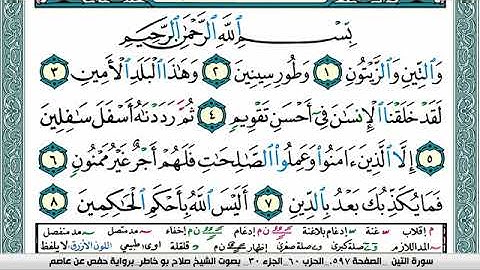 بِسْمِ ٱللَّهِ ٱلرَّحْمَٰنِ ٱلرَّحِيمِ
وَٱلتِّينِ وَٱلزَّيْتُونِ ١ وَطُورِ سِينِينَ ٢ وَهَٰذَا ٱلْبَلَدِ ٱلْأَمِينِ ٣
لَقَدْ خَلَقْنَا ٱلْإِنسَٰنَ فِىٓ أَحْسَنِ تَقْوِيمٍ ٤ ثُمَّ رَدَدْنَٰهُ أَسْفَلَ سَٰفِلِينَ
٥ إِلَّا ٱلَّذِينَ ءَامَنُوا۟ وَعَمِلُوا۟ ٱلصَّٰلِحَٰتِ فَلَهُمْ أَجْرٌ غَيْرُ مَمْنُونٍ ٦
فَمَا يُكَذِّبُكَ بَعْدُ بِٱلدِّينِ ٧ أَلَيْسَ ٱللَّهُ بِأَحْكَمِ ٱلْحَٰكِمِينَ ٨
م إقلاب غنة إدغام بلاغنة إدغام إخفاء مد متصل مد منفصل
المد اللازم صلة كبرى صلة صغرى إظهار قلقلة طبيعي اللون الأزرق لا يلفظ
سورة التين _ الصفحة ٥٩٧. الحزب ٦٠ . الجزء ٣٠ . بصوت الشيخ صلاح بو خاطر . برواية حفص عن عاصم